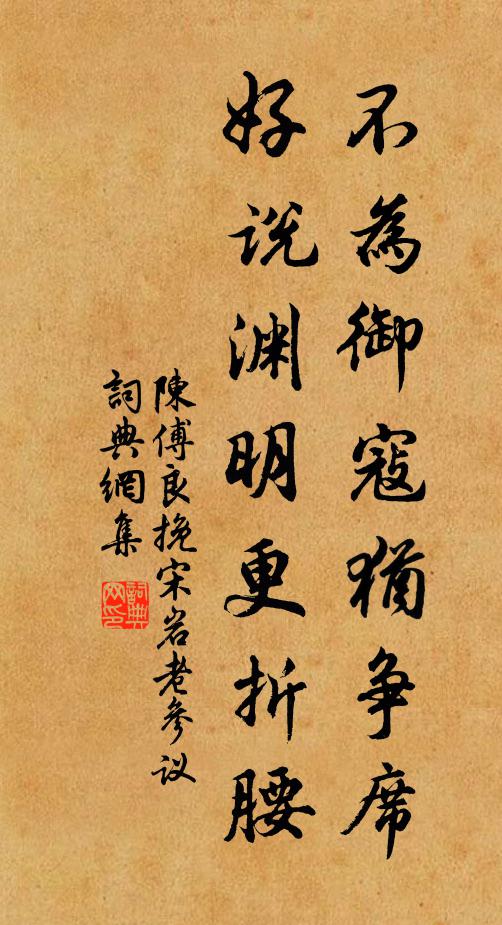 不為御寇猶争席
好说渊明更折腰
陳傅良挽宋岩老参议
詞典網集
詞典網印